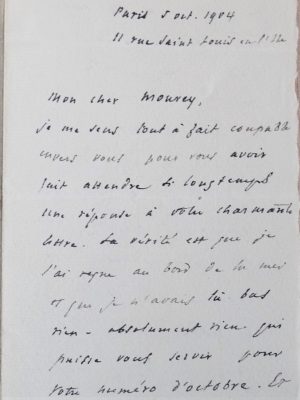 Paris 5 oct. 1904
11 rue Saint Louis en l'Isle
Mon cher Mourey,
je me sens tout à fait coupable
envers vous pour vous avoir
fait attendre si longtemps
une réponse à votre charmante
lettre. La vérité est que je
l'ai reçue au bord de la mer
et que je n'avais là bas
rien - absolument rien qui
puisse vous servir pour
votre numéro d'octobre. Et